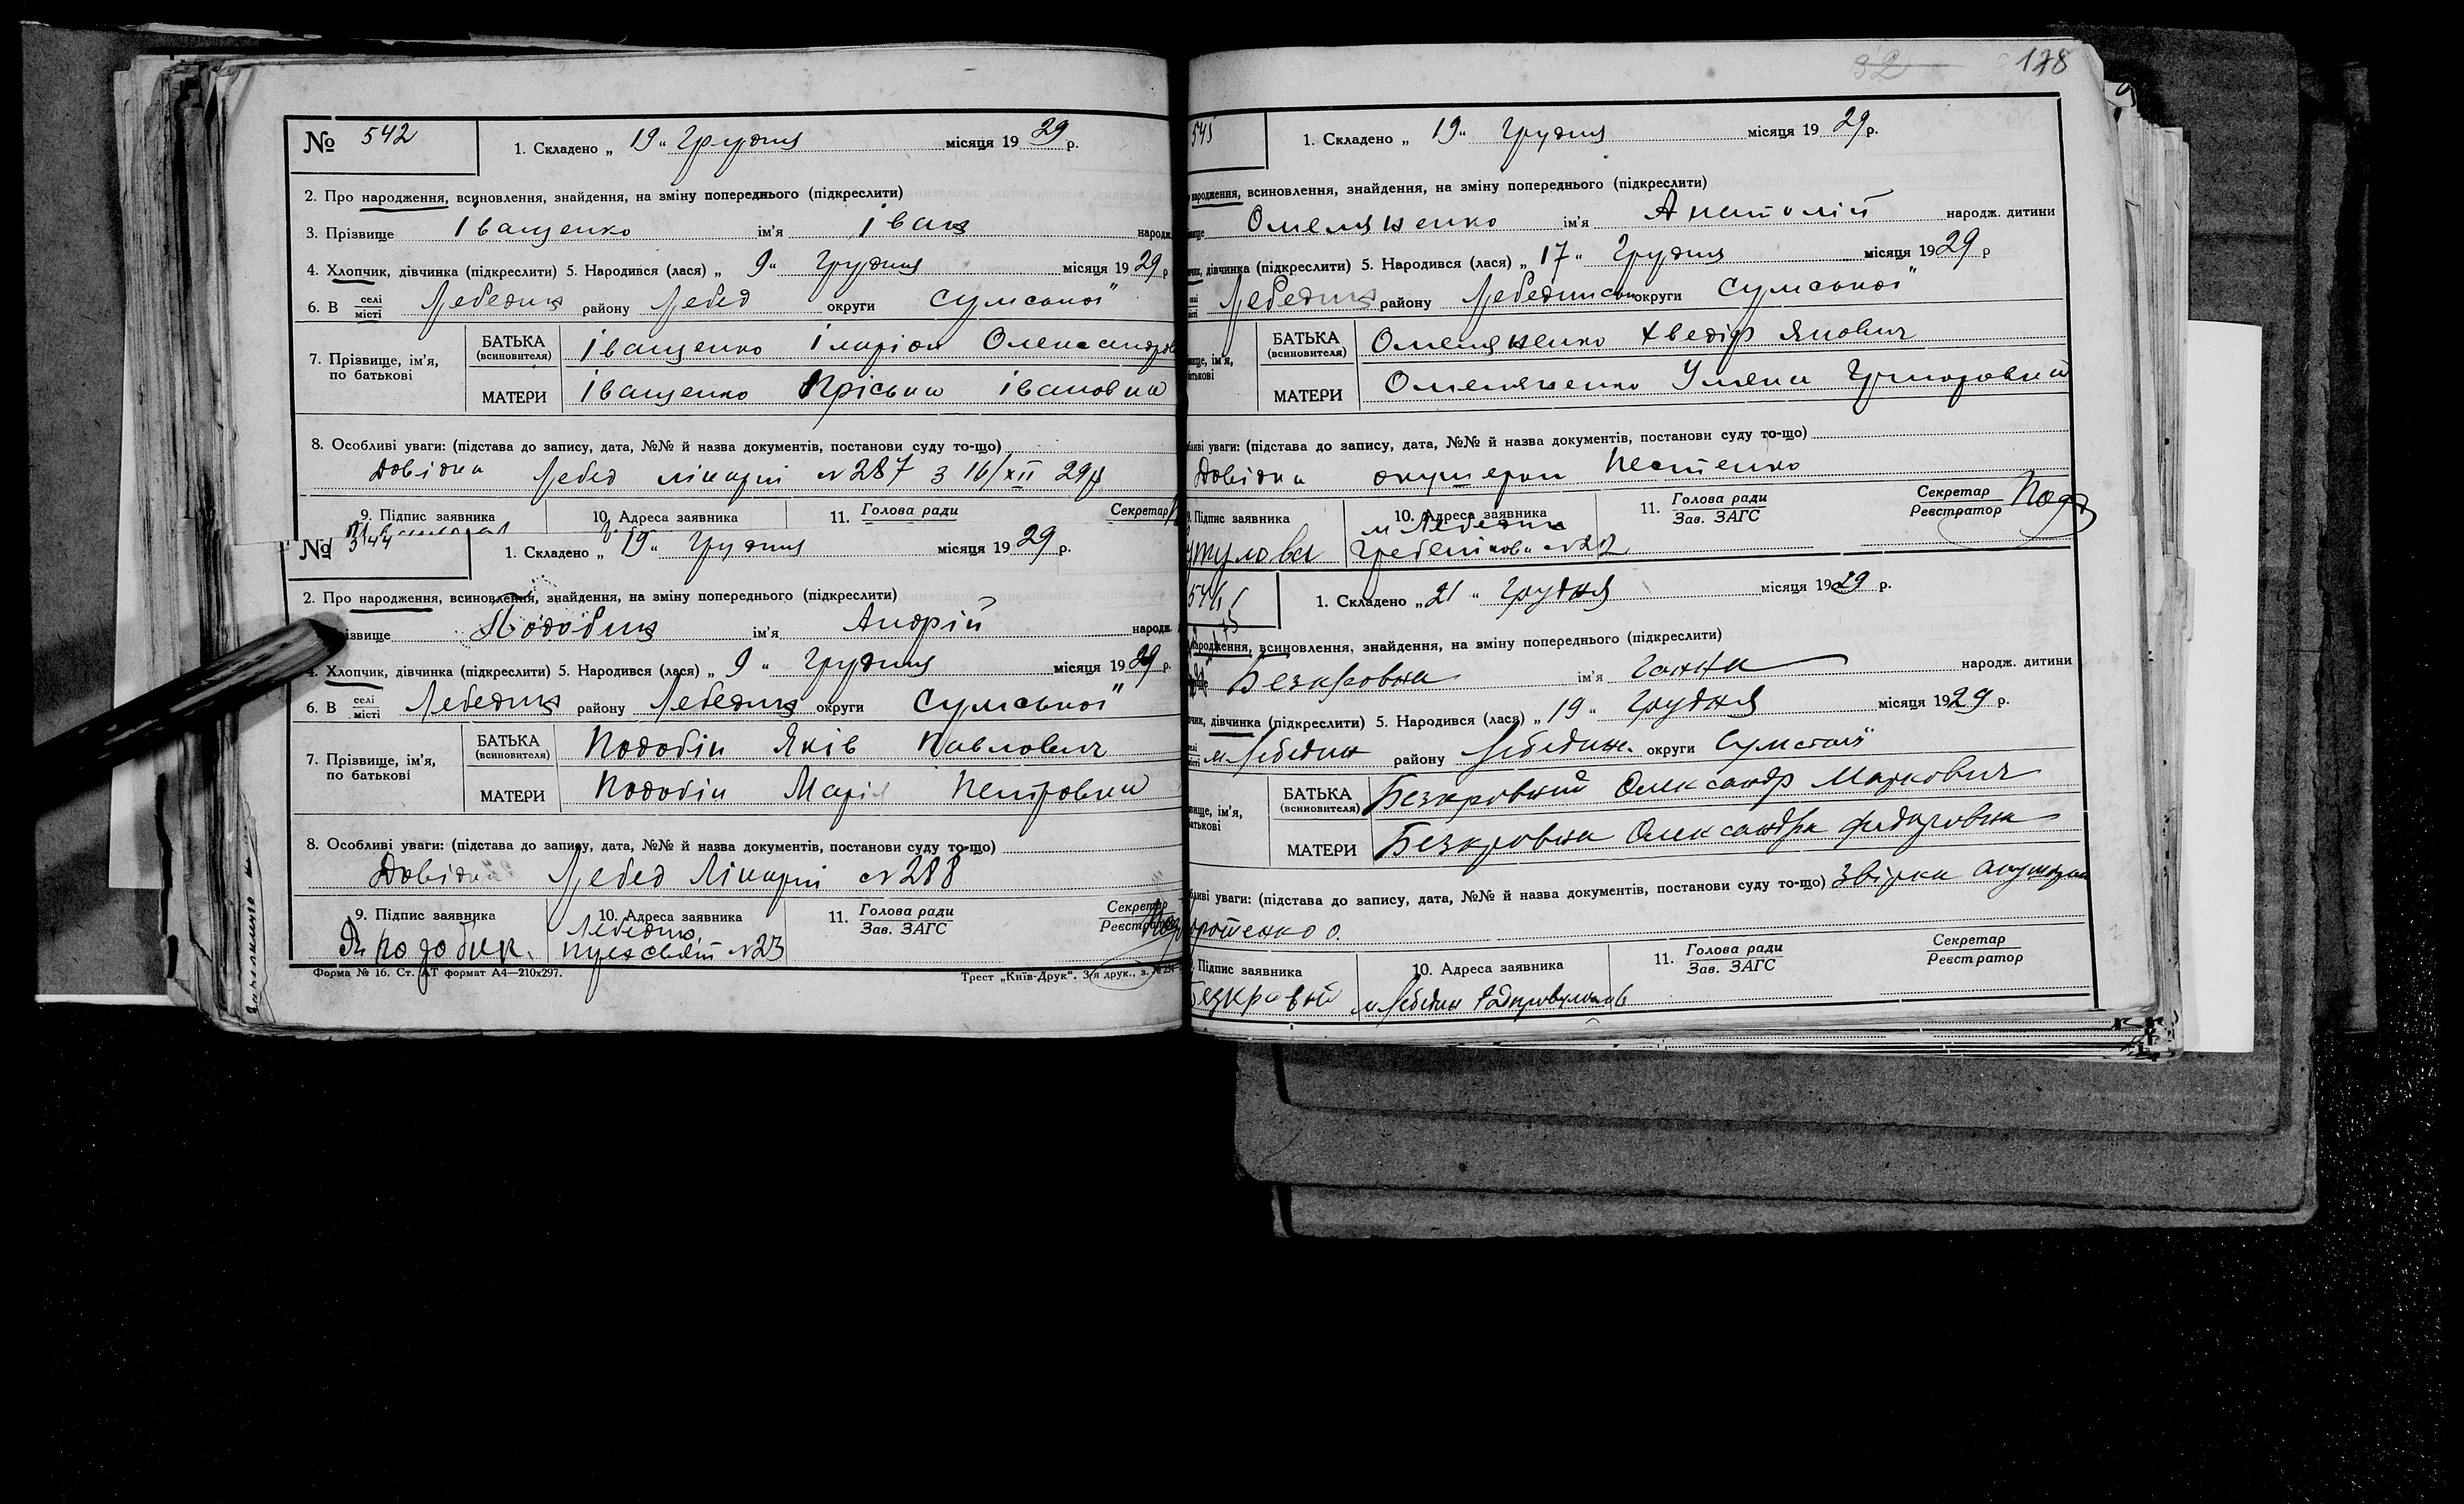 № 542
1. Складено „ 19 “ Грудня місяця 19 29 р.
2. Про народження, всиновлення, знайдення, на зміну попереднього (підкреслити)
3. Прізвище Іващенко ім'я Іван народж
4. Хлопчик, дівчинка (підкреслити) 5. Народився (лася) „ 9 “ Грудня місяця 19 29 р
6. В селі місті Лебедин району Лебед округи Сумської
7. Прізвище, ім'я, по батькові
БАТЬКА (всиновителя) Іващенко Іларіон Олександров
МАТЕРИ Іващенко Пріська Івановна
8. Особливі уваги: (підстава до запису, дата, №№ й назва документів, постанови суду то-що)
Довідка Лебед лікарні №287 з 16/XII 29р
9. Підпис заявника 10. Адреса заявника 11. Голова ради Секретар
№ 544
1. Складено „ 19 “ Грудня місяця 19 29 р.
2. Про народження, всиновлення, знайдення, на зміну попереднього (підкреслити)
ізвище Подобин ім'я Андрій народж
4. Хлопчик, дівчинка (підкреслити) 5. Народився (лася) „ 9 “ Грудня місяця 19 29 р.
6. В селі місті Лебедин району Лебедин округи Сумської
7. Прізвище, ім'я, по батькові
БАТЬКА (всиновителя) Подобін Яків Павлович
МАТЕРИ Подобін Марія Петровна
8. Особливі уваги: (підстава до запису, дата, №№ й назва документів, постанови суду то-що)
Довідка Лебед Лікарні №288
9. Підпис заявника 10. Адреса заявника 11. Голова ради Зав. ЗАГС Секретар Реєстратор
Як Подобин. Лебедин, №23
Форма № 16. Ст. АТ формат А4—210х297. Трест „Київ-Друк“. 3/я друк., з. №
32 178
545
1. Складено „ 19 “ Грудня місяця 19 29 р.
народження, всиновлення, знайдення, на зміну попереднього (підкреслити)
Омеляненко ім'я Анатолій народж. дитини
дівчинка (підкреслити) 5. Народився (лася) „ 17 “ Грудня місяця 19 29 р
Лебедин району Лебединськ округи Сумської
ім'я, батькові
БАТЬКА (всиновителя) Омеляненко Хведір Янович
МАТЕРИ Омеляненко Уляна Григоровна
уваги: (підстава до запису, дата, №№ й назва документів, постанови суду то-що)
Довідка акушерки Нестенко
Підпис заявника 10. Адреса заявника 11. Голова ради Зав. ЗАГС Секретар Реєстратор
м Лебедин
№22
546
1. Складено „ 21 “ Грудня місяця 19 29 р.
народження, всиновлення, знайдення, на зміну попереднього (підкреслити)
Безкровна ім'я Ганна народж. дитини
дівчинка (підкреслити) 5. Народився (лася) „ 19 “ Грудня місяця 19 29 р.
м Лебедин району Лебедин. округи Сумської
ім'я, батькові
БАТЬКА (всиновителя) Безкровний Олександр Маркович
МАТЕРИ Безкровна Олександра Федоровна
уваги: (підстава до запису, дата, №№ й назва документів, постанови суду то-що)
Підпис заявника 10. Адреса заявника 11. Голова ради Зав. ЗАГС Секретар Реєстратор
Безкровній м Лебедин